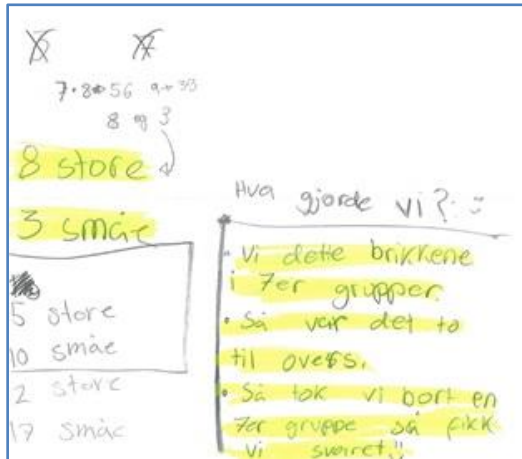 7·8=56
8 og 3
8 store
3 småe
5 store
10 småe
2 store
17 småe
Hva gjorde vi?
Vi dette brikkene
i 7er grupper.
• Så var det to
til overs.
• Så tok vi bort en
7er gruppe så fikk
vi svaret!!